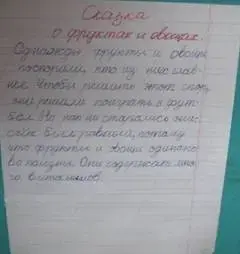 Сказка
о фруктах и овощах.
Однажды фрукты и овощи
поспорили, кто из них глав-
нее. Чтобы решить этот спор,
они решили поиграть в фут-
бол. Но как ни старались
был равный, потому
что фрукты и овощи одинако-
во полезны. Они содержат мно-
го витаминов.